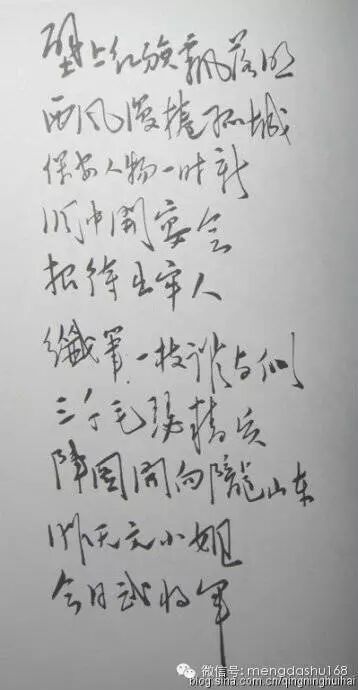 壁上红旗飘落照
西风漫捲孤城
保安人物一时新
洞中開宴会
招待出牢人
纖筆一枝誰与似
三千毛瑟精兵
陣图開向隴山东
昨天文小姐
今日武将军
微信号: mengdashu168
blog.sina.com.cn/qingninghuihai